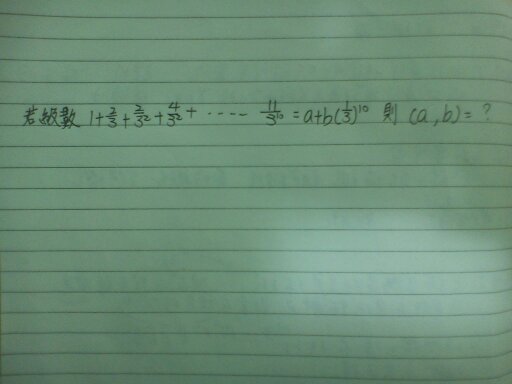 若級數 1+2/3+2/3²+4/3²+ ‥‥‥ 11/3¹⁰ = a+b(1/3)¹⁰ 則 (a,b)=?